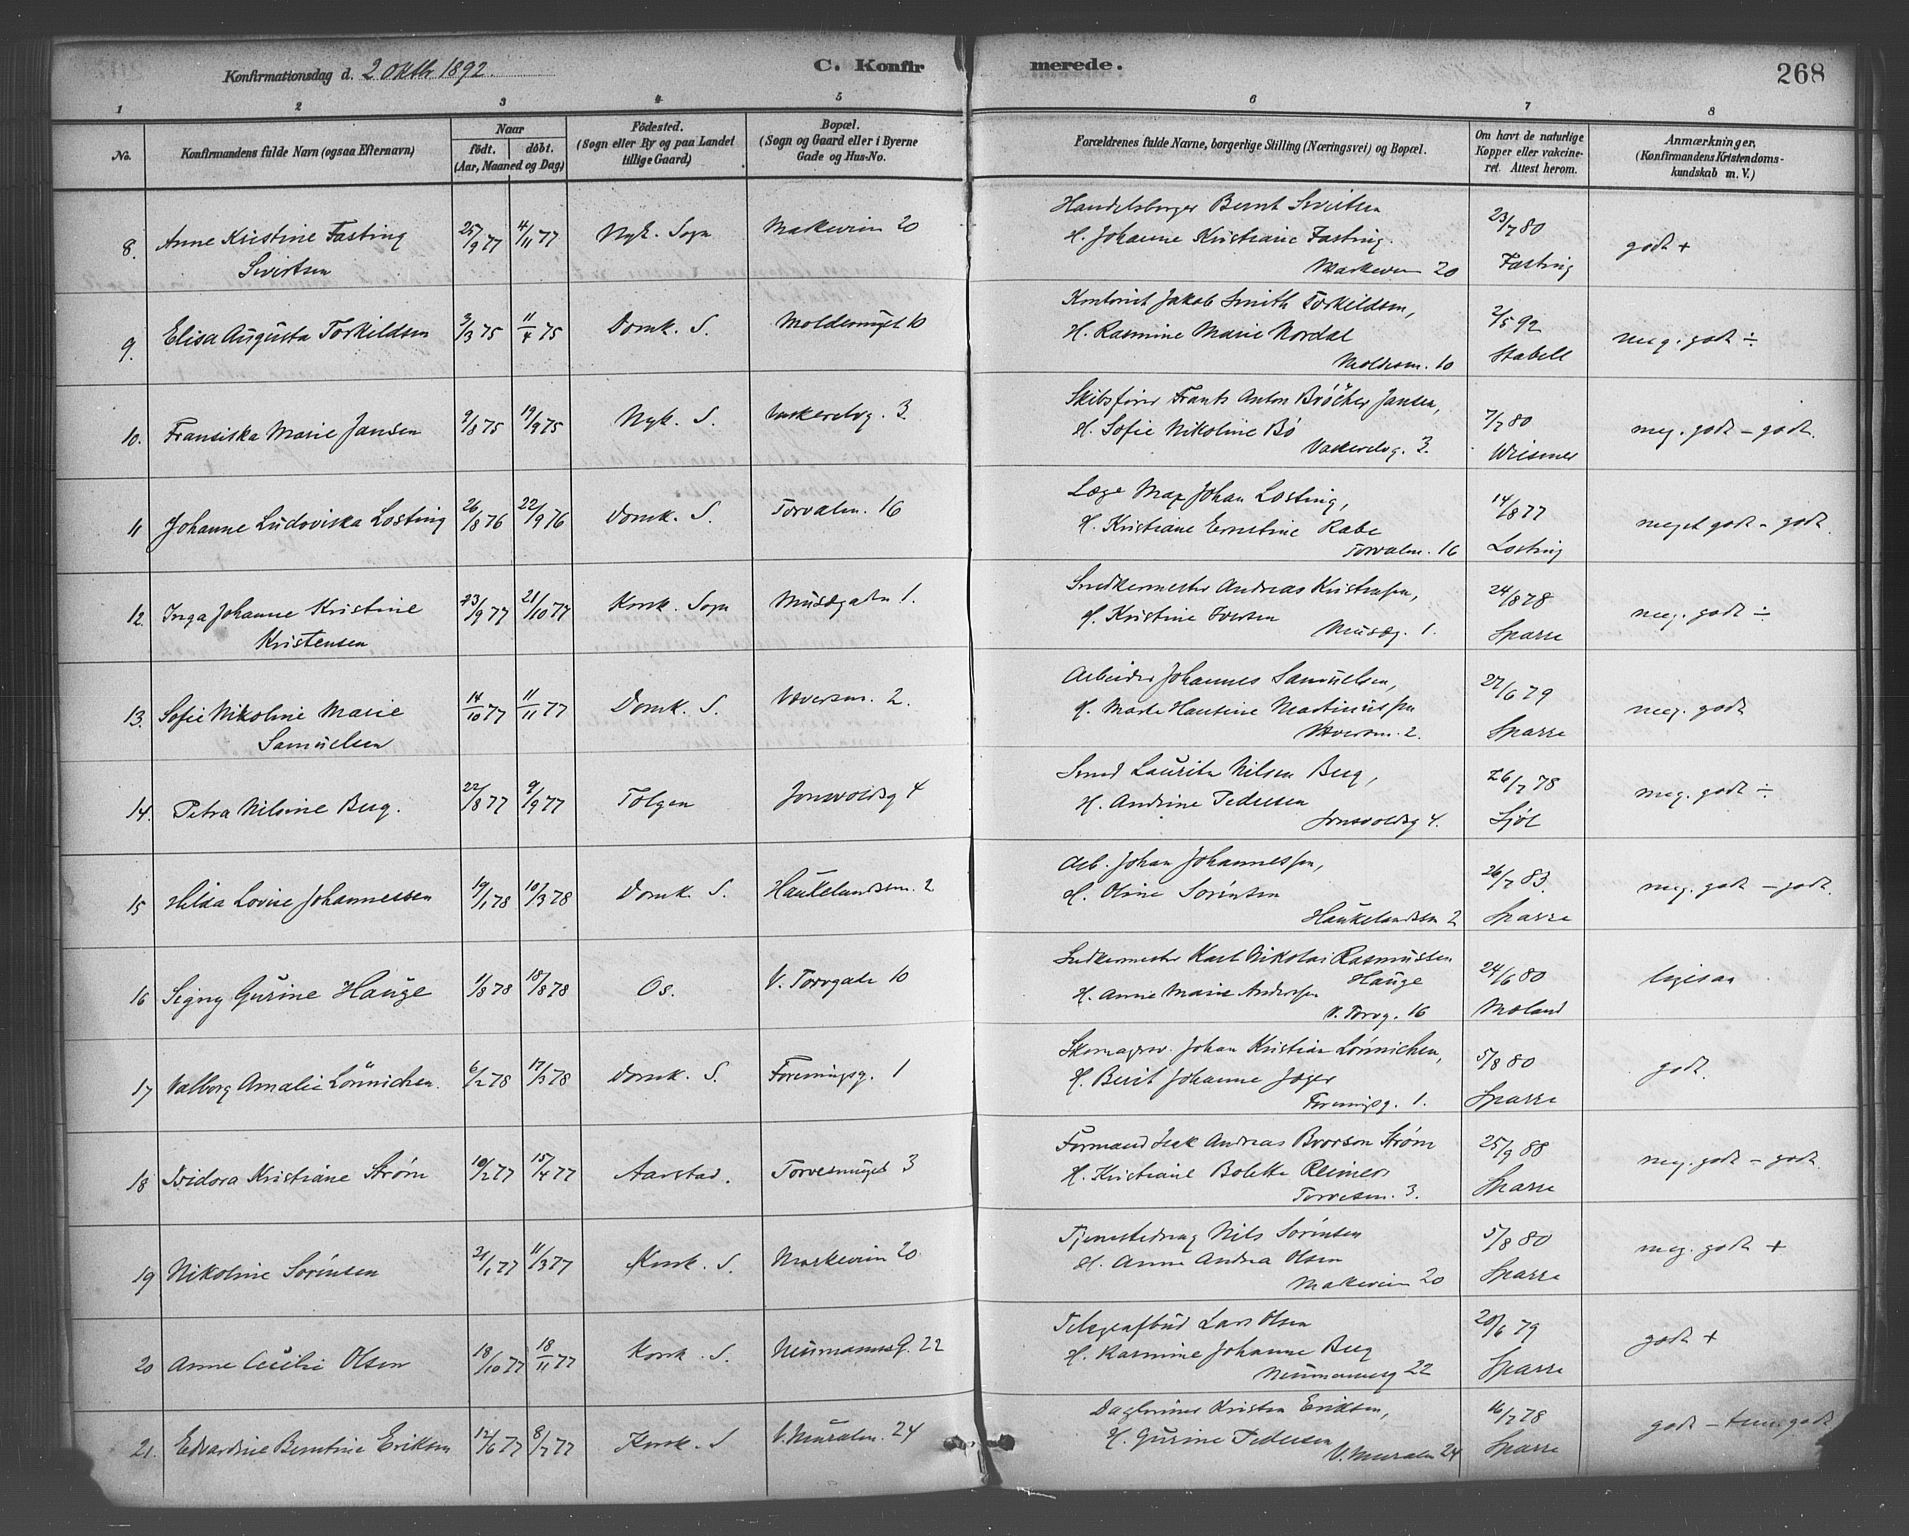 Konfirmationsdag d. 2 Oktbr 1892.
C. Konfirmerede.
268
1 2 3 4 5 6 7 8
No.
Konfirmandens fulde Navn (ogsaa Efternavn)
Naar
födt. döbt.
(Aar, Maaned og Dag)
Födested.
(Sogn eller By og paa Landet
tillige Gaard)
Bopæl.
(Sogn og Gaard eller i Byerne
Gade og Hus-No.
Forældrenes fulde Navne, borgerlige Stilling (Næringsvei) og Bopæl.
Om havt de naturlige
Kopper eller vakcine-
ret. Attest herom.
Anmærkninger,
(Konfirmandens Kristendoms-
kundskab m. V.)
8. Anne Kristine Fasting
Sivertsen
25/9 77 4/11 77 Nyk. Sogn Markeveien 20
Handelsborger Bernt Sivertsen
H. Johanne Kristiane Fasting.
Markeveien 20
23/7 80
Fasting
godt +
9. Elisa Augusta Torkildsen
3/3 75 11/4 75 Domk. S. Moldesmuget 10
Kontorist Jakob Smith Torkildsen,
H. Rasmine Marie Nordal
Moldesm. 10
2/5 92
Stabell
meg. godt ÷
10. Fransiska Marie Jansen
9/8 75 19/9 75 Nyk. S. Vaskerelvg. 3.
Skibsfører Frants Anton Bröcher Jansen,
H. Sofie Nikoline Bö
Vaskerelvg. 3.
7/7 80
Wiesener
meg. godt - godt.
11 Johanne Ludoviska Losting
26/8 76 22/9 76 Domk. S. Torvalm. 16
Læge Max Johan Losting,
H. Kristiane Ernstine Rabe
Torvalm. 16
14/8 77
Losting
meget godt - godt.
12. Inga Johanne Kristine
Kristensen
23/9 77 21/10 77 Korsk. Sogn Musægaten 1.
Snedkermester Andreas Kristensen,
H. Kristine Iversen
Musæg. 1.
24/8 78
Sparre
meg. godt ÷
13. Sofie Nikoline Marie
Samuelsen
14/10 77 11/11 77 Domk. S. Væversm. 2.
Arbeider Johannes Samuelsen,
H. Marte Hansine Martinussen
Væversm. 2.
27/6 79
Sparre
meg. godt
14. Petra Nilsine Berg.
22/8 77 9/9 77 Tolgen Jonsvoldsg 4
Smed Laurits Nilsen Berg,
H. Andrine Pedersen
Jonsvoldsg 4.
26/7 78
Sjöl
meg. godt ÷
15 Hilda Lovise Johannessen
19/1 78 10/3 78 Domk. S. Haukelandsm. 2
Arb. Johan Johannessen,
H. Oline Sörensen
Haukelandsm 2
26/7 83.
Sparre
meg. godt - godt.
16 Signy Gurine Hauge
1/8 78 18/8 78 Os. V. Torvgade 10
Snedkermester Karl Nikolai Rasmussen
Hauge
H. Anne Marie Andersen
V. Torvg. 16
24/6 80
Moland
ligesaa
17 Valborg Amalie Lönnichen.
6/2 78 17/3 78 Domk. S. Foreningsg. 1
Skomagersv. Johan Kristian Lönnichen,
H. Berit Johanne Jæger
Foreningsg. 1.
5/8 80
Sparre
godt.
18 Isidora Kristiane Strøm
10/2 77 15/4 77 Aarstad. Torvesmuget 3
Formand Isak Andreas Brorson Strøm
H. Kristiane Bolette Reimers
Torvesm. 3.
25/9 88
Sparre
meg. godt - godt.
19 Nikoline Sörensen
21/1 77 11/3 77 Korsk. S. Markeveien 20.
Tjenestedreng Nils Sörensen
H. Anne Andrea Olsen
Markeveien 20
5/8 80
Sparre
meg. godt +
20 Anne Cecilie Olsen
18/10 77 18/11 77 Korsk. S. NeumannsG. 22
Telegrafbud Lars Olsen
H. Rasmine Johanne Berg
Neumannsg 22
20/6 79
Sparre
godt +
21. Edvardine Berntine Eriksen
12/6 77 8/7 77 Korsk. S V. Muralm. 24
Daglönner Kristen Eriksen,
H. Gurine Pedersen
V. Muralm 24
16/7 78
Sparre
godt - tem. godt